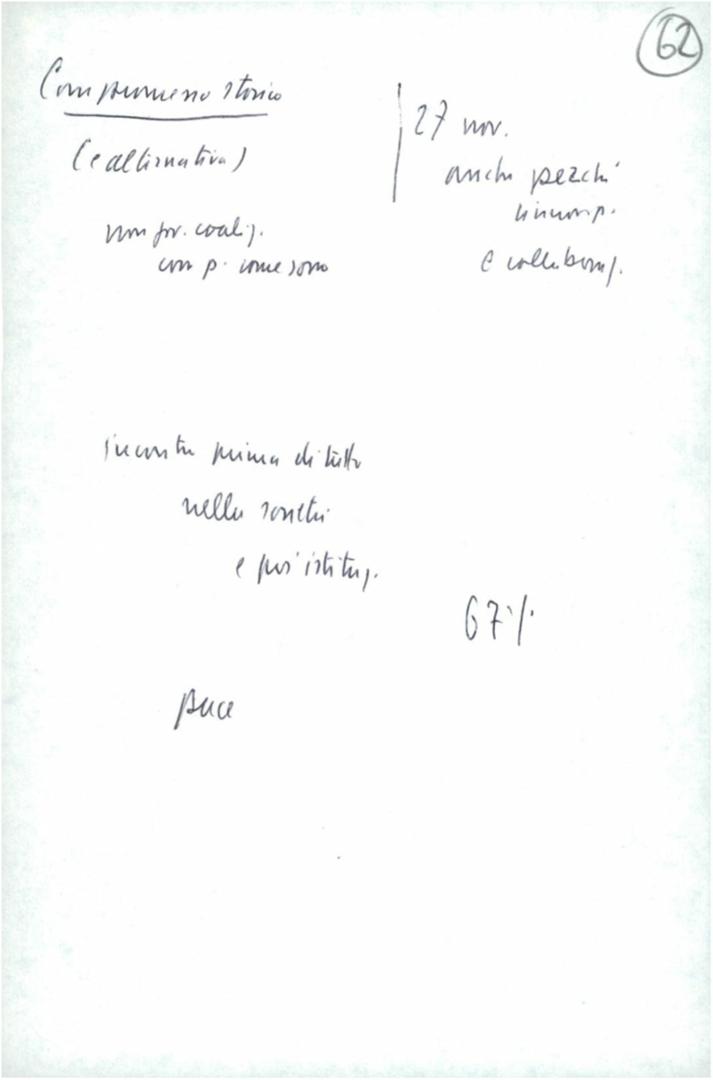 62
Compromesso storico
(e alternativa)
non gov. coaliz.
con p. come sono
27 nov.
anche perché
si incomp.
e collaboraz.
incontro prima di tutto
nella società
e poi istituz.
67%
pace